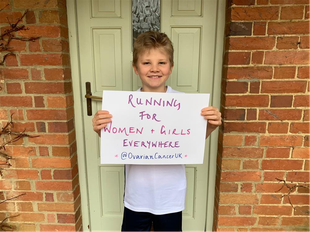 RUNNING
FOR
WOMEN + GIRLS
EVERYWHERE
- @OVARIANCANCERUK -